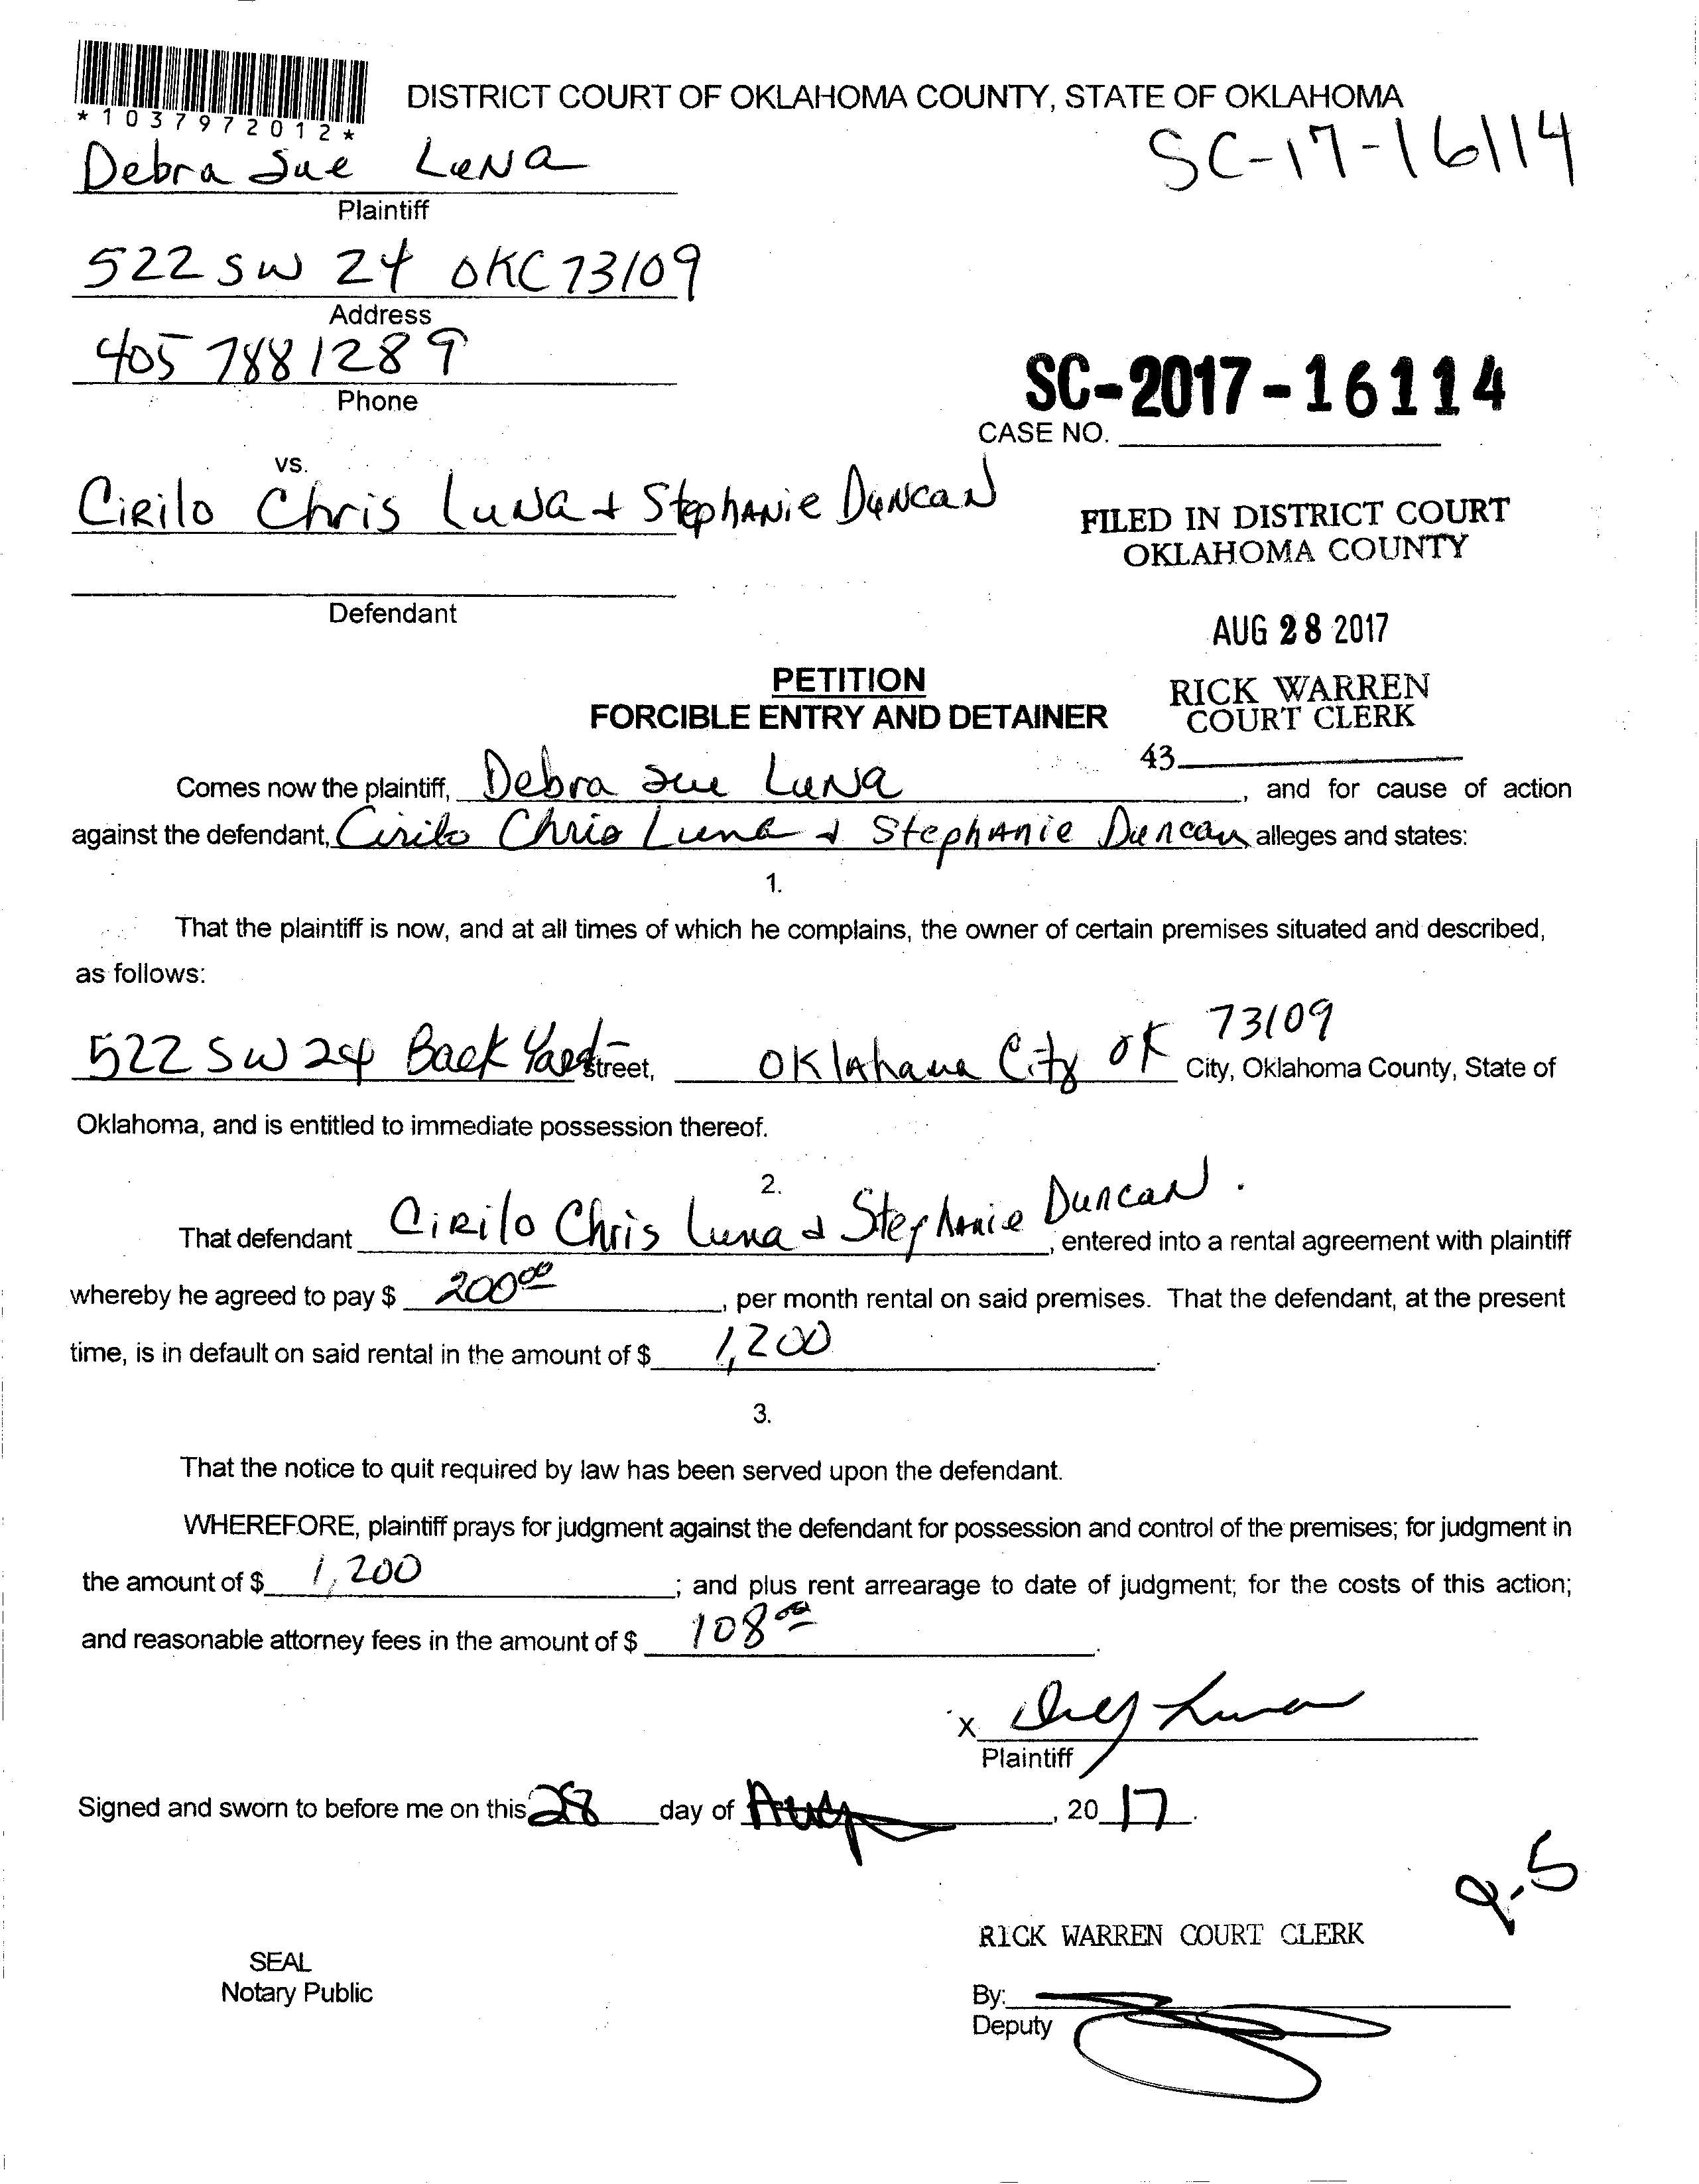 *1037972012*
DISTRICT COURT OF OKLAHOMA COUNTY, STATE OF OKLAHOMA
SC-17-16114
Debra Sue Luna
Plaintiff
522 SW 24 OKC 73109
Address
405 788 1289
Phone
SC-2017-16114
CASE NO.
vs.
Cirilo Chris Luna + Stephanie Duncan
FILED IN DISTRICT COURT
OKLAHOMA COUNTY
Defendant
AUG 28 2017
PETITION
FORCIBLE ENTRY AND DETAINER
RICK WARREN
COURT CLERK
43
Comes now the plaintiff, Debra Sue Luna, and for cause of action
against the defendant, Cirilo Chris Luna + Stephanie Duncan alleges and states:
1.
That the plaintiff is now, and at all times of which he complains, the owner of certain premises situated and described,
as follows:
522 SW 24 Back Yard Street, Oklahama City OK 73109 City, Oklahoma County, State of
Oklahoma, and is entitled to immediate possession thereof.
2.
That defendant Cirilo Chris Luna + Stephanie Duncan, entered into a rental agreement with plaintiff
whereby he agreed to pay $ 200 00, per month rental on said premises. That the defendant, at the present
time, is in default on said rental in the amount of $ 1,200.
3.
That the notice to quit required by law has been served upon the defendant.
WHEREFORE, plaintiff prays for judgment against the defendant for possession and control of the premises; for judgment in
the amount of $ 1,200; and plus rent arrearage to date of judgment; for the costs of this action;
and reasonable attorney fees in the amount of $ 108 00.
X
Plaintiff
Signed and sworn to before me on this 28 day of Aug, 20 17.
9-5
RICK WARREN COURT CLERK
SEAL
Notary Public
By:
Deputy